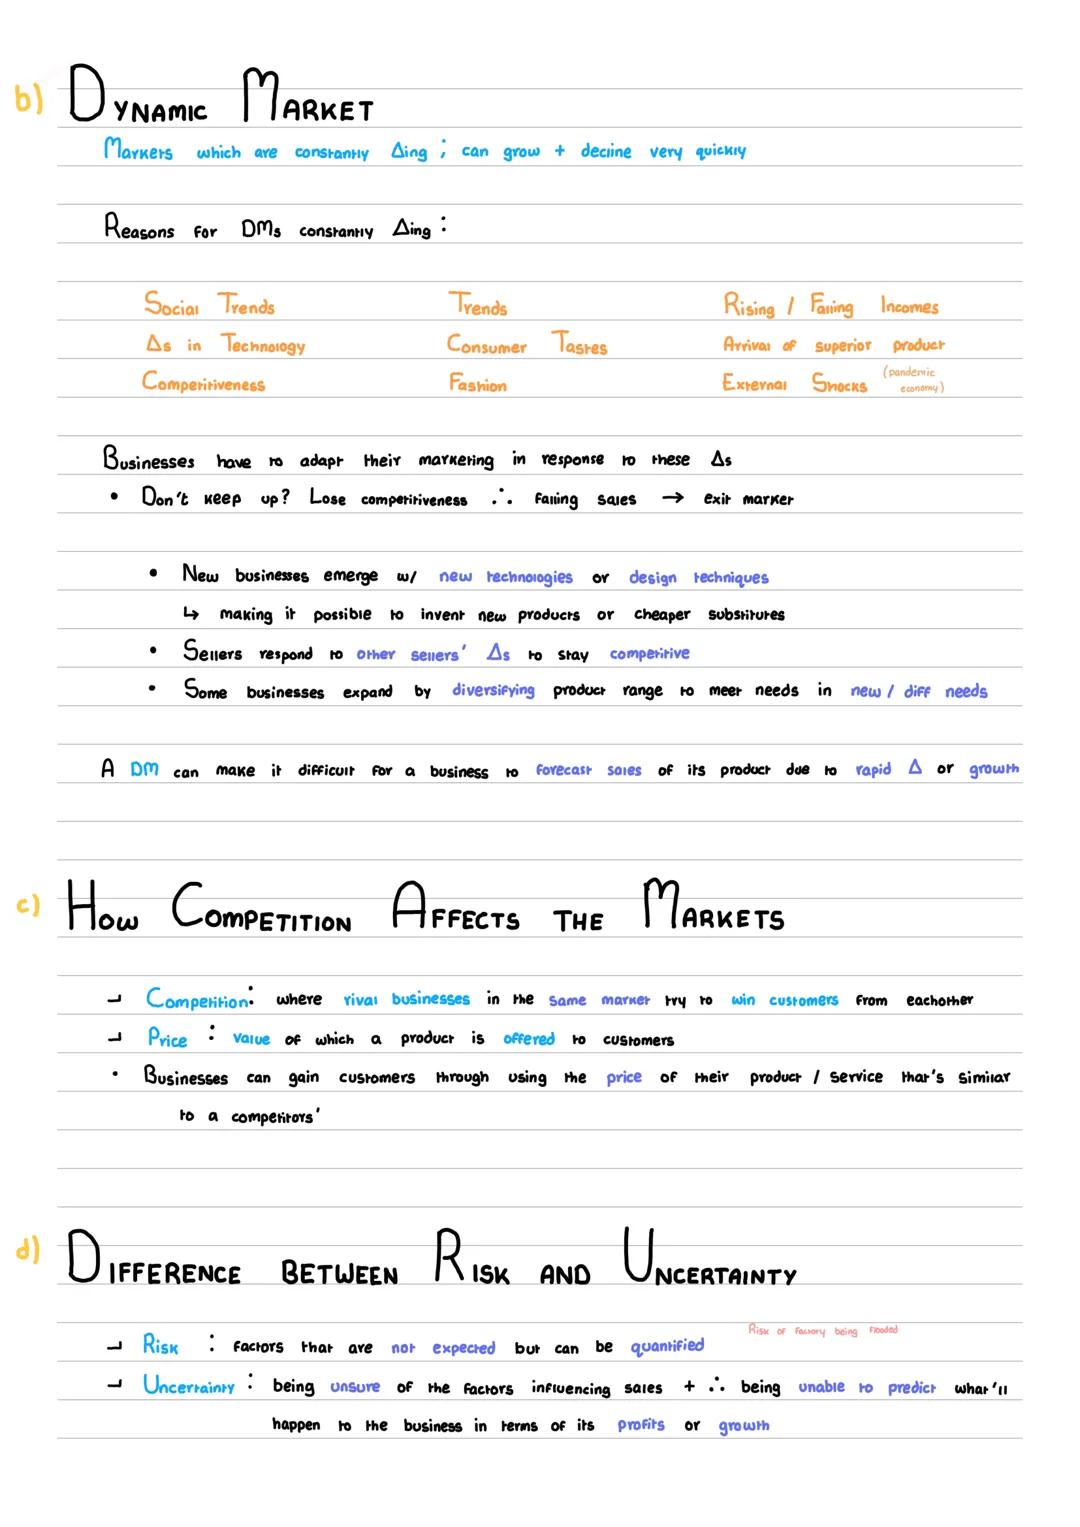 b) DYNAMIC MARKET
Markets which are constantly Δing ; can grow + decline very quickly
Reasons for DMs constantly Δing :
Social Trends Trends Rising / Falling Incomes
Δs in Technology Consumer Tastes Arrival of superior product
Competitiveness Fashion External Shocks (pandemic economy)
Businesses have to adapt their marketing in response to these Δs
• Don't keep up? Lose competitiveness ∴ falling sales → exit market
• New businesses emerge w/ new technologies or design techniques
↳ making it possible to invent new products or cheaper substitutes
• Sellers respond to other sellers' Δs to stay competitive
• Some businesses expand by diversifying product range to meet needs in new / diff needs
A DM can make it difficult for a business to forecast sales of its product due to rapid Δ or growth
c) HOW COMPETITION AFFECTS THE MARKETS
Competition: where rival businesses in the same market try to win customers from eachother
Price : value of which a product is offered to customers
• Businesses can gain customers through using the price of their product / service that's similar
to a competitors'
d) DIFFERENCE BETWEEN RISK AND UNCERTAINTY
Risk of factory being flooded
Risk : factors that are not expected but can be quantified
Uncertainty : being unsure of the factors influencing sales + ∴ being unable to predict what'll
happen to the business in terms of its profits or growth